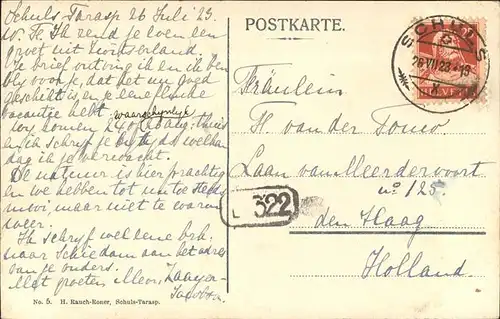 Schuls Tarasp 26 Juli 23.
Ik zend je even een
groet uit Zwitserland.
Je brief ontving ik en ik ben
blij voor je, dat het zoo goed
geschikt is en je eene flinke
vacantie hebt.
waarschijnlijk
komen 24 thuis
en ik schrijf je welken
dag ik je verwacht.
De natuur is hier prachtig
en we hebben tot nu toe steeds
mooi, maar niet te warm
weer.
Ik schrijf wel eene brk.
naar Schiedam aan het adres
van je ouders.
Met groeten
POSTKARTE.
SCHULS
26 VII 23 - 19
HELVETIA
Fräulein
H. van der
Laan van Meerdervoort
no 125.
L 322
den Haag
Holland
No. 5. H. Rauch-Roner, Schuls-Tarasp.